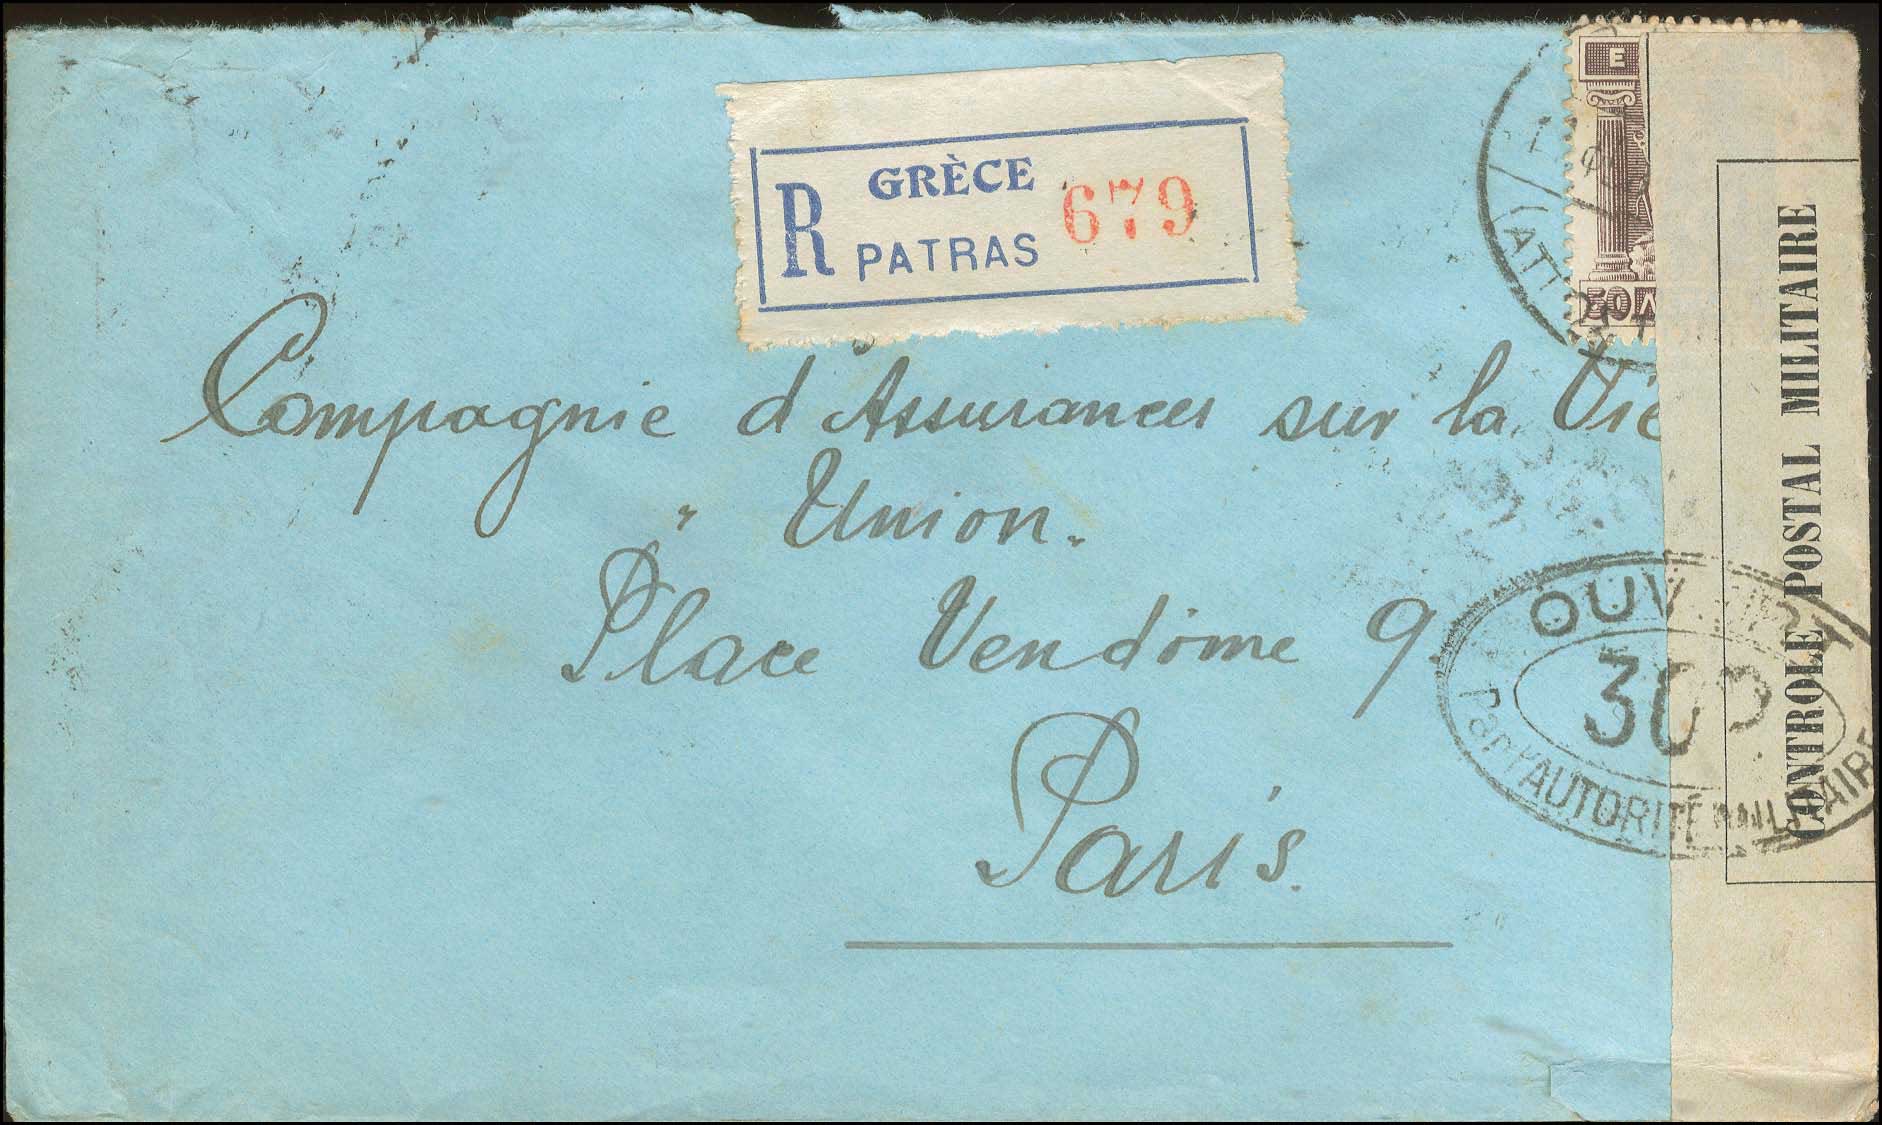 GRÈCE
R PATRAS 679
E
50
Compagnie d'Assurances sur la Vie
" Union.
Place Vendôme 9.
Paris.
CONTROLE POSTAL MILITAIRE
par l'AUTORITÉ MILITAIRE